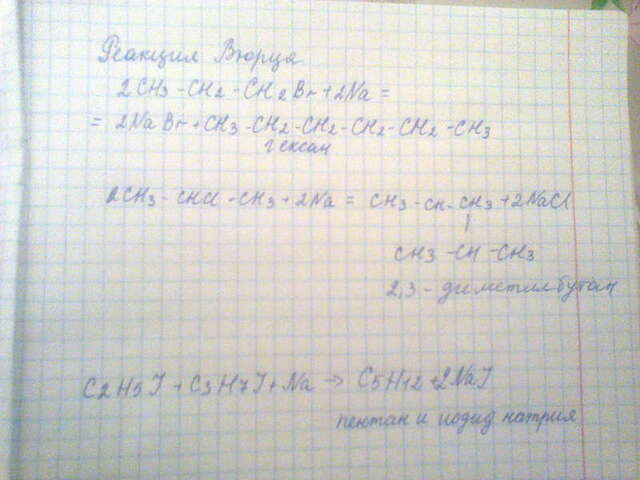 Реакция Вюрца
2CH3-CH2-CH2Br+2Na=
=2NaBr+CH3-CH2-CH2-CH2-CH2-CH3
гексан
2CH3-CHCl-CH3+2Na=CH3-CH-CH3+2NaCl
|
CH3-CH-CH3
2,3-диметилбутан
C2H5J+C3H7J+Na→C5H12+2NaJ
пентан и иодид натрия